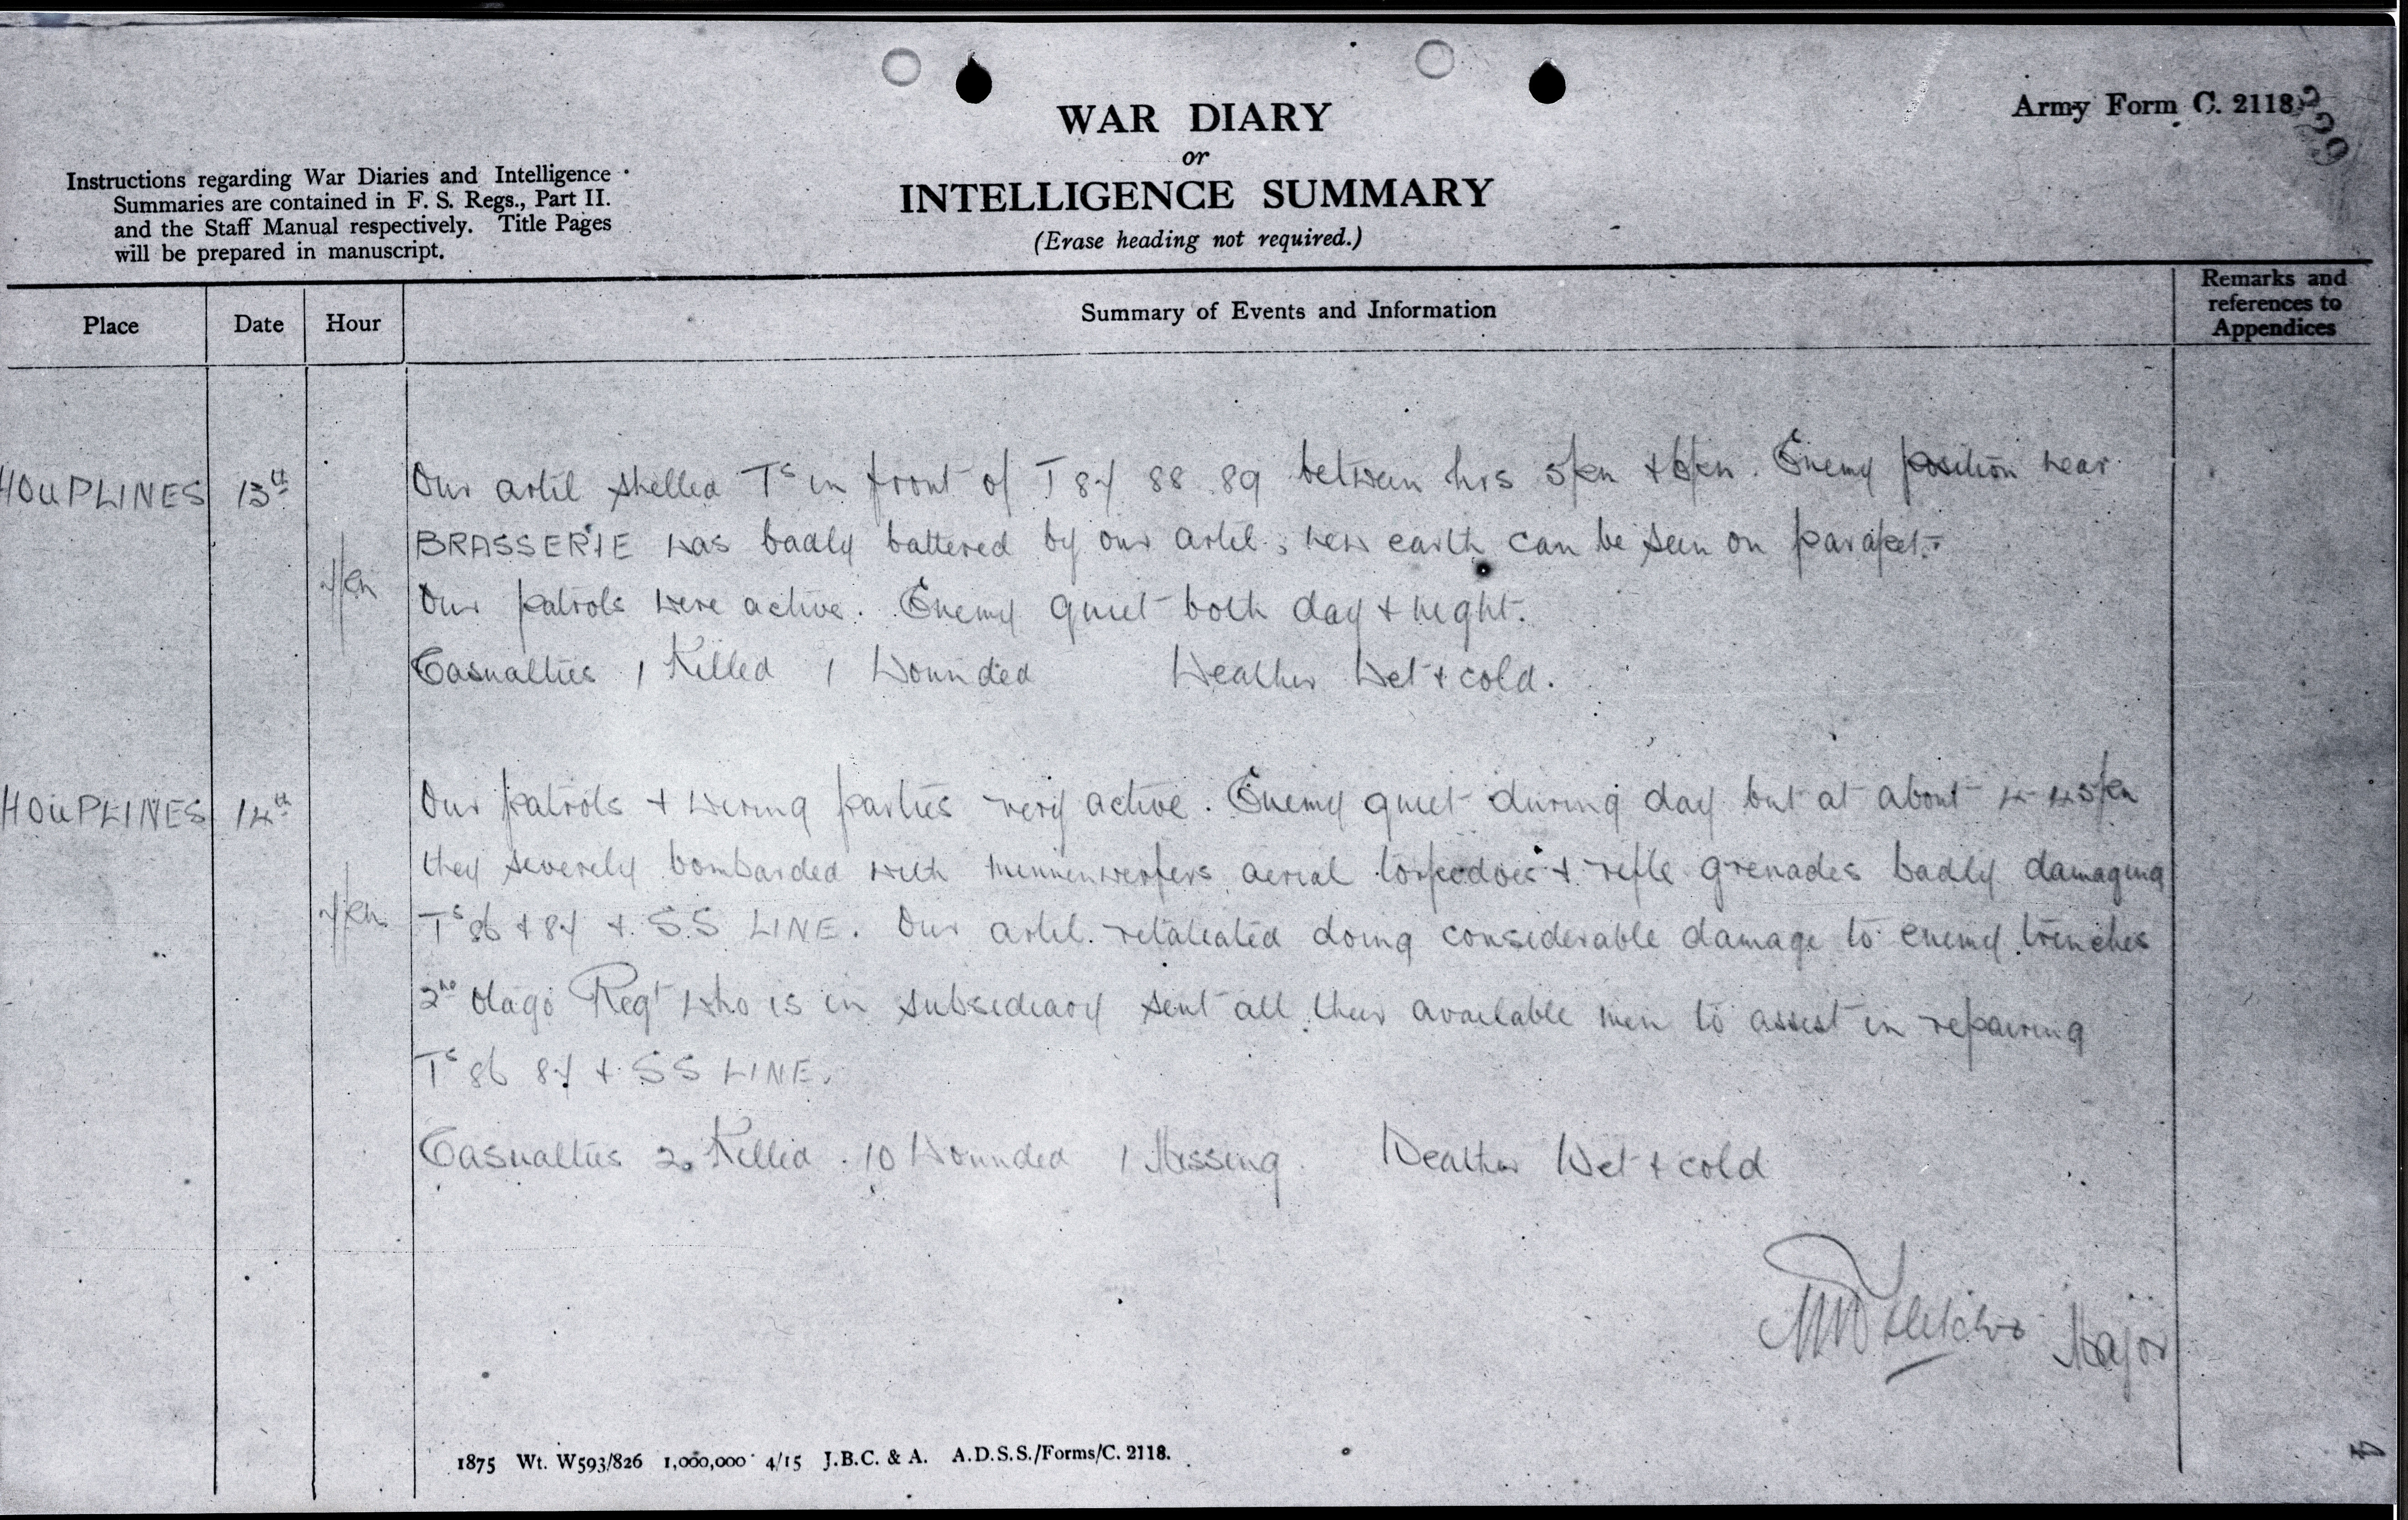 Army Form C. 2118
329
WAR DIARY
or
INTELLIGENCE SUMMARY
(Erase heading not required.)
Instructions regarding War Diaries and Intelligence
Summaries are contained in F. S. Regs., Part II.
and the Staff Manual respectively. Title Pages
will be prepared in manuscript.
Place Date Hour Summary of Events and Information Remarks and references to Appendices
HOUPLINES 13th Our artil shelled Ts in front of T 87 88 89 between hrs 5pm + 6pm. Enemy position near
BRASSERIE was badly battered by our artil, new earth can be seen on parapet.
Our patrols were active. Enemy quiet both day + night.
Casualties 1 Killed 1 Wounded Weather Wet + cold.
HOUPLINES 14th Our patrols + wiring parties very active. Enemy quiet during day but at about 4-45pm
they severely bombarded with minnenwerfers aerial torpedoes + rifle grenades badly damaging
Ts 86 + 87 + S.S LINE. Our artil. retaliated doing considerable damage to enemy trenches
2nd Otago Regt who is in subsidiary sent all their available men to assist in repairing
Ts 86 87 + SS LINE.
Casualties 2 Killed . 10 Wounded 1 Missing. Weather Wet + cold
Fletcher Major
1875 Wt. W593/826 1,000,000 4/15 J.B.C. & A. A.D.S.S./Forms/C. 2118.
4